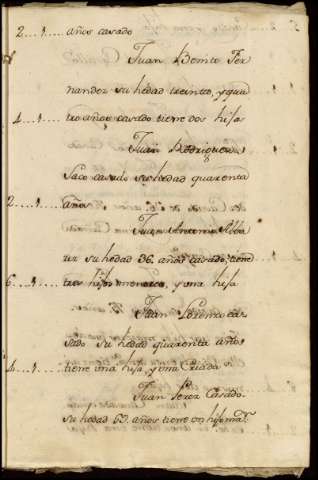 2....1.... años casado
Juan Benito Fer
nandez su hedad treinta, y qua
4....1.... tro años casado tiene dos hijos
Juan Rodriguez
Saco casado su hedad quarenta
2....1.... años
Juan Antonio Alba
rez su hedad 36. años casado, tiene
6....1.... tres hijos menores, y una hija
Juan Lorenzo cas
sado su hedad quarenta años
4....1.... tiene una hija y una Criada
Juan Perez Casado
su hedad 63. años tiene un hijo maʳ.